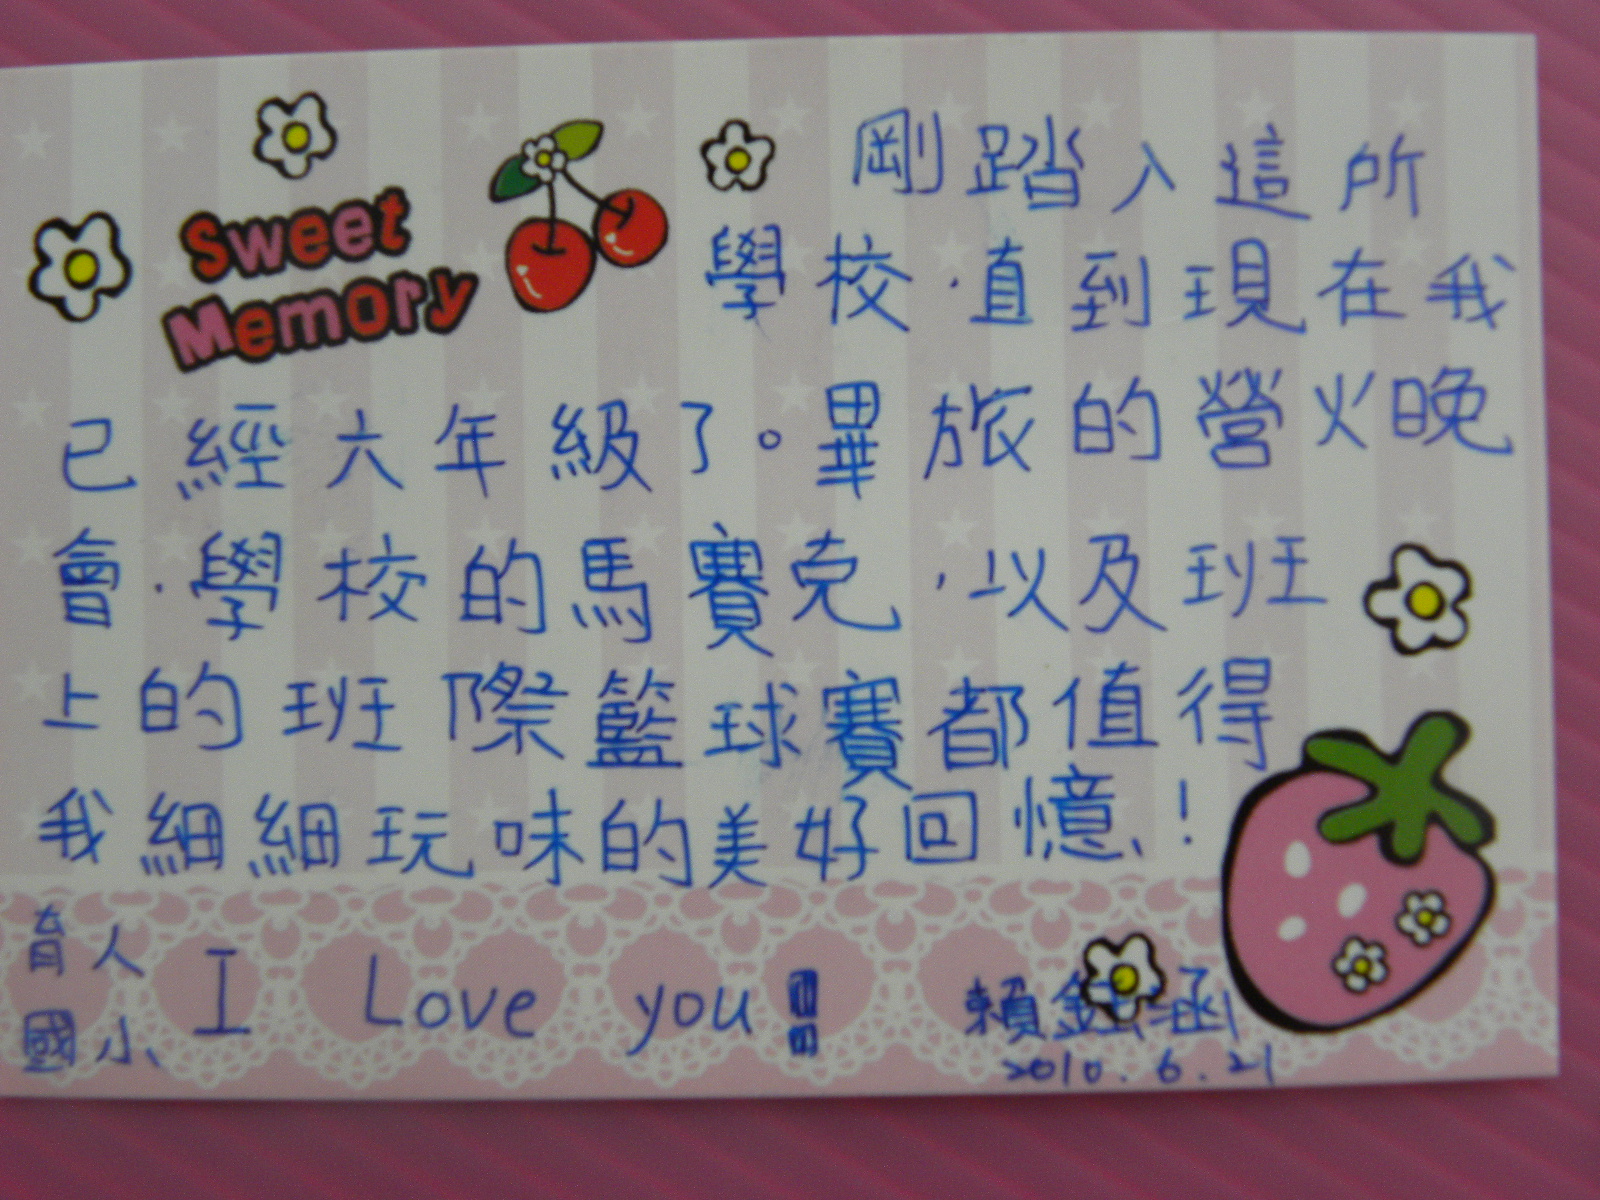 Sweet
Memory
剛踏入這所
學校,直到現在我
已經六年級了。畢旅的營火晚
會,學校的馬賽克,以及班
上的班際籃球賽都值得
我細細玩味的美好回憶!
育人
國小
I Love you!!
賴鈺涵
2010.6.21